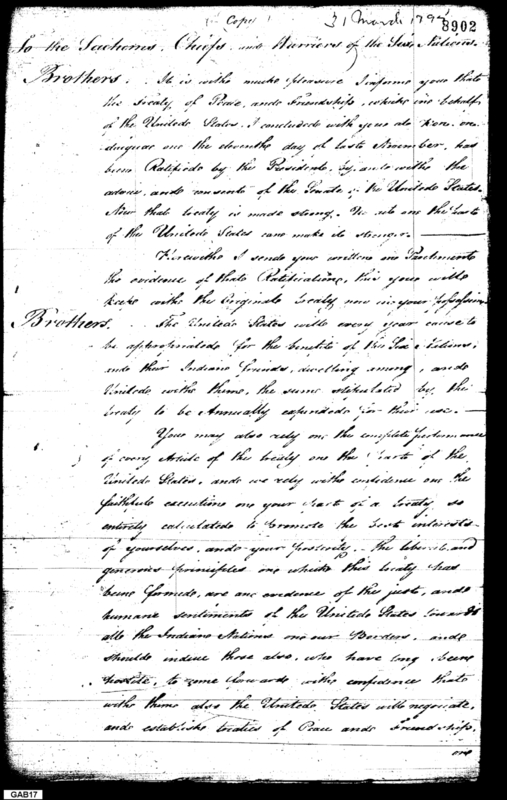 (Copy) 31 March 1795
8902
To the Sachems, Chiefs, and Warriors of the Six Nations.
Brothers. It is with much pleasure I inform you that
the Treaty of Peace, and Friendship, which in behalf
of the United States, I concluded with you at Kon-on-
daigua on the eleventh day of last November, has
been Ratified by the President, by and with the
advice, and consent of the Senate of the United States.
Now that treaty is made strong. No act on the part
of the United States can make it stronger.
Herewith I send you written on Parchment
the evidence of that Ratification, this you will
keep with the Original Treaty now in your possession
Brothers. The United States will every year cause to
be appropriated for the benefit of the Six Nations,
and their Indian friends, dwelling among, and
United with them, the sum stipulated by the
treaty to be Annually expended for their use.
You may also rely on the complete performance
of every Article of this treaty on the Part of the
United States, and we rely with confidence on the
faithful execution on your part of a Treaty so
entirely calculated to promote the best interests
of yourselves, and your posterity. The liberal and
generous principles on which this treaty has
been formed, are an evidence of the just, and
humane sentiments of the United States towards
all the Indian Nations on our Borders, and
should induce those also, who have long been
hostile, to come forwards with confidence that
with them also the United States will negociate,
and establish treaties of Peace and Friendship,
on
GAB17